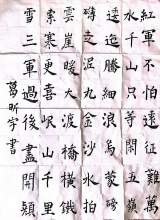 紅軍不怕遠征難萬
水千山只等閒五嶺
逶迤騰細浪烏蒙磅
礴走泥丸金沙水拍
雲崖暖大渡橋橫鐵
索寒更喜岷山千里
雪三軍過後盡開顏
昕宇書